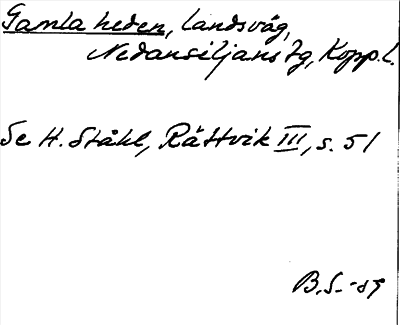 Gamla heden, landsväg,
Nedansiljans tg, Kopp.l.
Se H. Ståhl, Rättvik III, s. 51
B.S. -89